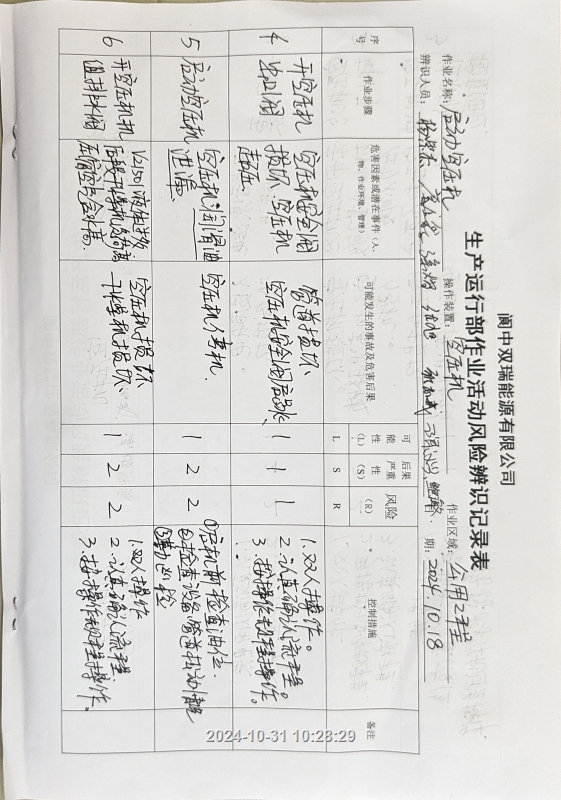 阆中双瑞能源有限公司
生产运行部作业活动风险辨识记录表
作业名称：启动空压机 操作装置：空压机 作业区域：公用工程
辨识人员： 期：2024.10.18
序号 作业步骤 危害因素或潜在事件（人、物、作业环境、管理） 可能发生的事故及危害后果 可能性（L） 后果严重性（S） 风险（R） 控制措施 备注
L S R
4 开空压机 空压机安全阀损坏 空压机 管道损坏 空压机安全阀 1 1 1 1.双人操作。
2.认真确认流程。
3.按操作规程操作。
5 启动空压机 空压机润滑油泄漏 空压机停机. 1 2 2 ①启机前检查油位.
②检查设备管道振动情况
巡检
6 开空压机机组排水阀 空压机损坏 干燥机损坏 1 2 2 1.双人操作
2.认真确认流程
3.按操作规程操作。
2024-10-31 10:28:29